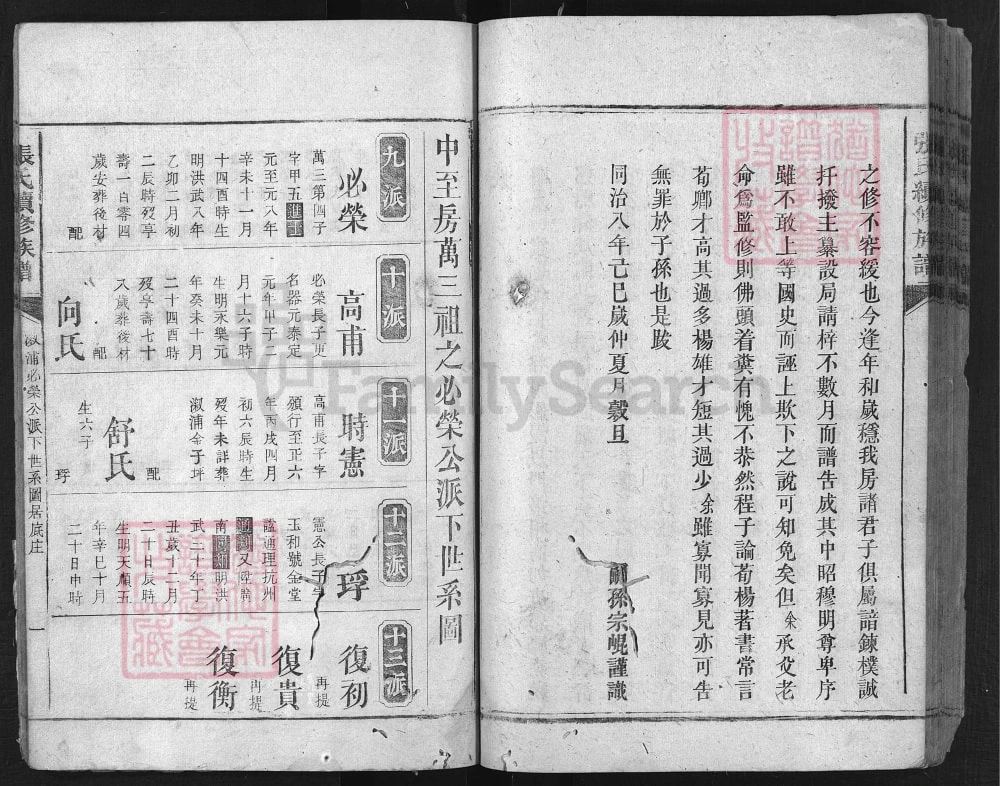 張氏續修族譜
之修不容緩也今逢年和歲穩我房諸君子俱屬諳鍊樸誠
扦撥主纂設局請梓不數月而譜告成其中昭穆明尊卑序
雖不敢上等國史而誣上欺下之說可知免矣但余承父老
命爲監修則佛頭着糞有愧不恭然程子論荀楊著書常言
荀卿才高其過多楊雄才短其過少余雖寡聞寡見亦可告
無罪於子孫也是跋
同治八年己巳歲仲夏月穀旦
嗣孫宗崐謹識
中至房萬三祖之必榮公派下世系圖
九派
必榮
萬三第四子
字甲五進士
元至元八年
辛未十一月
十四酉時生
明洪武八年
乙卯二月初
二辰時歿享
壽一百零四
歲安葬後材
配
十派
高甫
必榮長子更
名器元泰定
元年甲子二
月十六子時
生明永樂元
年癸未十月
二十四酉時
歿享壽七十
八歲葬後材
配
向氏
十一派
時憲
高甫長子字
頒行至正六
年丙戌四月
初六辰時生
歿年未詳葬
溆浦金子坪
配
舒氏
生六子
玗
十二派
玗
憲公長子字
玉和號金堂
諡通理杭州
通判又陞
南
明洪
武三十年丁
丑歲十二月
二十日辰時
生明天順五
年辛巳十月
二十日申時
十三派
復初
再提
復貴
再提
復衡
再提
張氏續修族譜
溆浦必榮公派下世系圖居底庄
一
FamilySearch